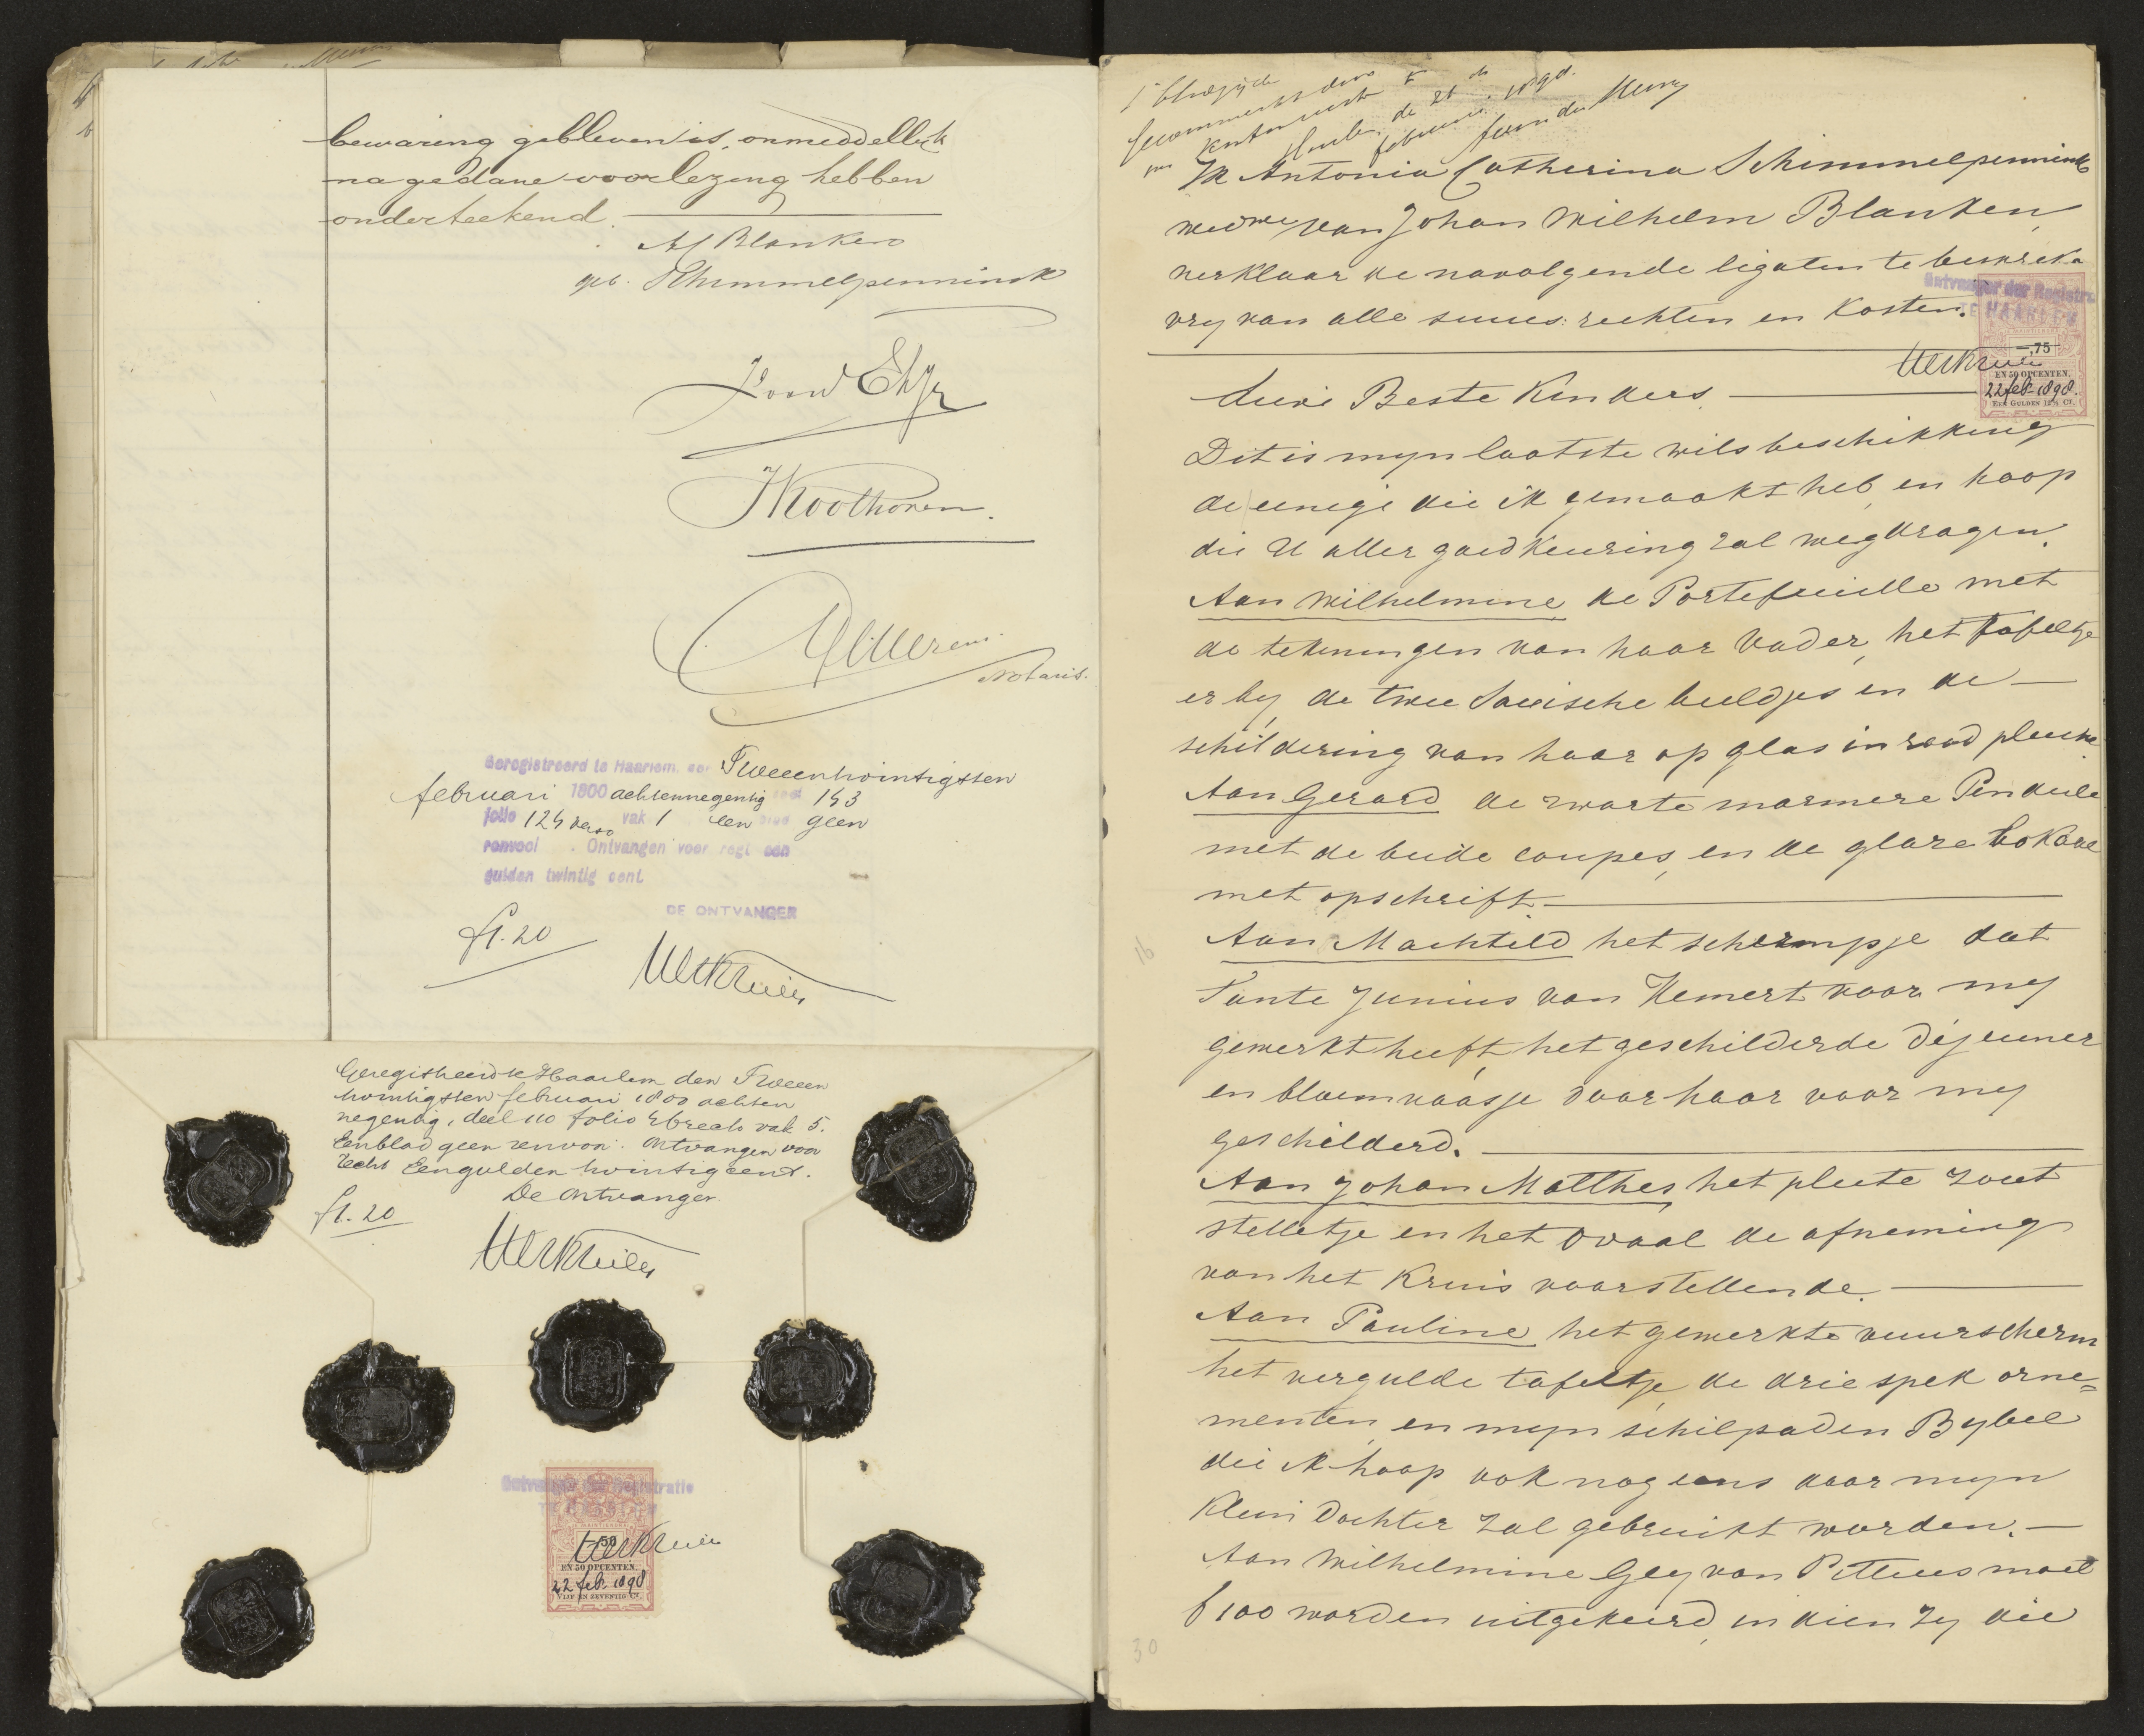 bewaring gebleven is, onmiddellijk
na gedane voorlezing hebben
onderteekend.
Blanken
geb. Schimmelpenninck
Notaris.
Geregistreerd te Haarlem, den Tweeentwintigsten
februari 1800 achtennegentig deel 143
folio 124 verso vak 1 een blad geen
renvooi. Ontvangen voor regt een
gulden twintig cent.
DE ONTVANGER
f1.20
Geregistreerd te Haarlem den Tweeen
twintigsten februari 1800 achten
negentig, deel 110 folio recto vak 5.
Een blad geen renvooi. Ontvangen voor
recht Een gulden twintig cent.
De Ontvanger
f1.20
Ontvanger der Registratie
TE HAARLEM
50
EN 50 OPCENTEN.
22 feb. 1898
VIJF EN ZEVENTIG CT.
Ik Antonia Catherina Schimmelpenninck
wedwe van Johan Wilhelm Blanken,
verklaar de navolgende legaten te
vry van alle succes: rechten en Kosten.
Ontvanger der Registratie
TE HAARLEM
,75
EN 50 OPCENTEN.
22 feb. 1898.
EEN GULDEN 12½ CT.
Lieve Beste Kinders
Dit is myn laatste wilsbeschikking
de eenige die ik gemaakt heb, en hoop
die U aller goedkeuring zal wegdragen.
Aan Wilhelmine de Portefeuille met
de tekeningen van haar Vader, het tafeltje
er by de twee Saxische beeldjes en de
schildering van haar op glas in rood pluche
Aan Gerard de zwarte marmere Pendule
met de beide coupes, en de glaze bokaal
met opschrift.
Aan Machteld het schermpje dat
Tante Junius van Hemert voor my
gewerkt heeft, het geschilderde déjeuner
en bloemvaasje door haar voor my
geschilderd.
Aan Johan Matthes, het pleete zout
stelletje en het Ovaal de afneming
van het Kruis voorstellende.
Aan Pauline het gewerkte vuurscherm
het vergulde tafeltje, de drie spek orne=
menten, en myn schilpaden Bybel
die ik hoop ook nog eens door myn
Klein Dochter zal gebruikt worden.
Aan Wilhelmine Gey van Pittius moet
f 100 worden uitgekeerd, indien zy die
16
30